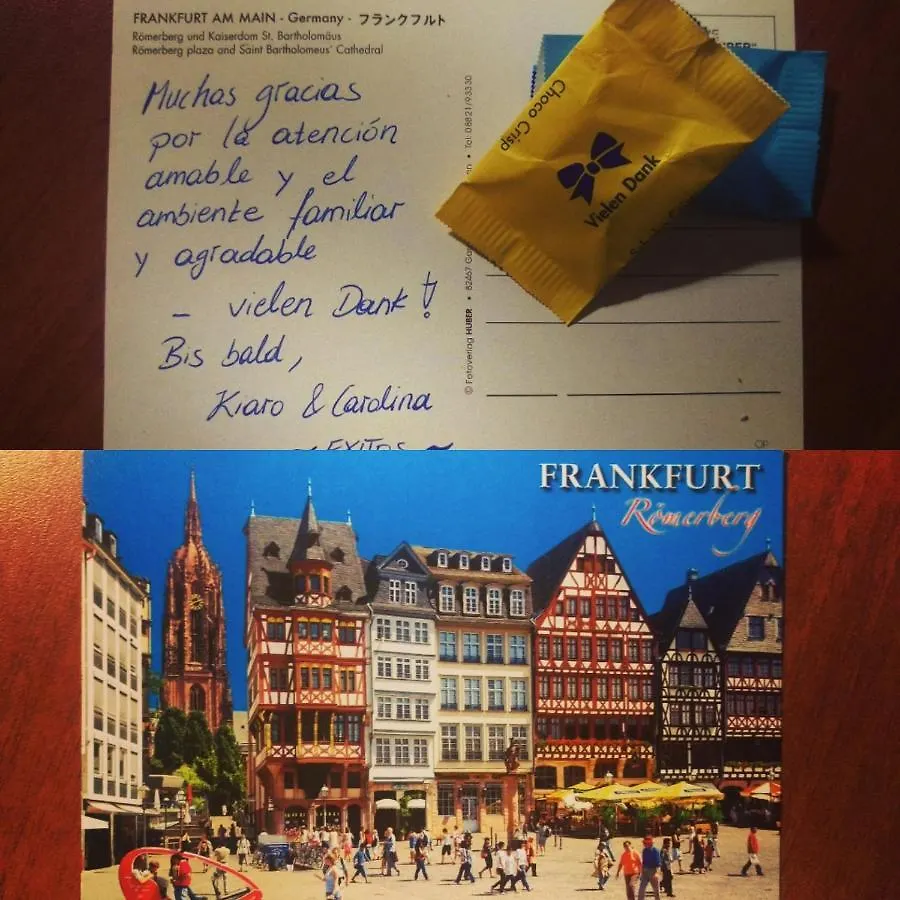 FRANKFURT AM MAIN - Germany - フランクフルト
Römerberg und Kaiserdom St. Bartholomäus
Römerberg plaza and Saint Bartholomeus' Cathedral
Muchas gracias
por la atención
amable y el
ambiente familiar
y agradable
– vielen Dank!
Bis bald,
Kiaro & Carolina
~ EXITOS ~
© Fotoverlag HUBER • 82467 • Tel: 08821/93330
Choco Crisp
Vielen Dank
OP
FRANKFURT
Römerberg